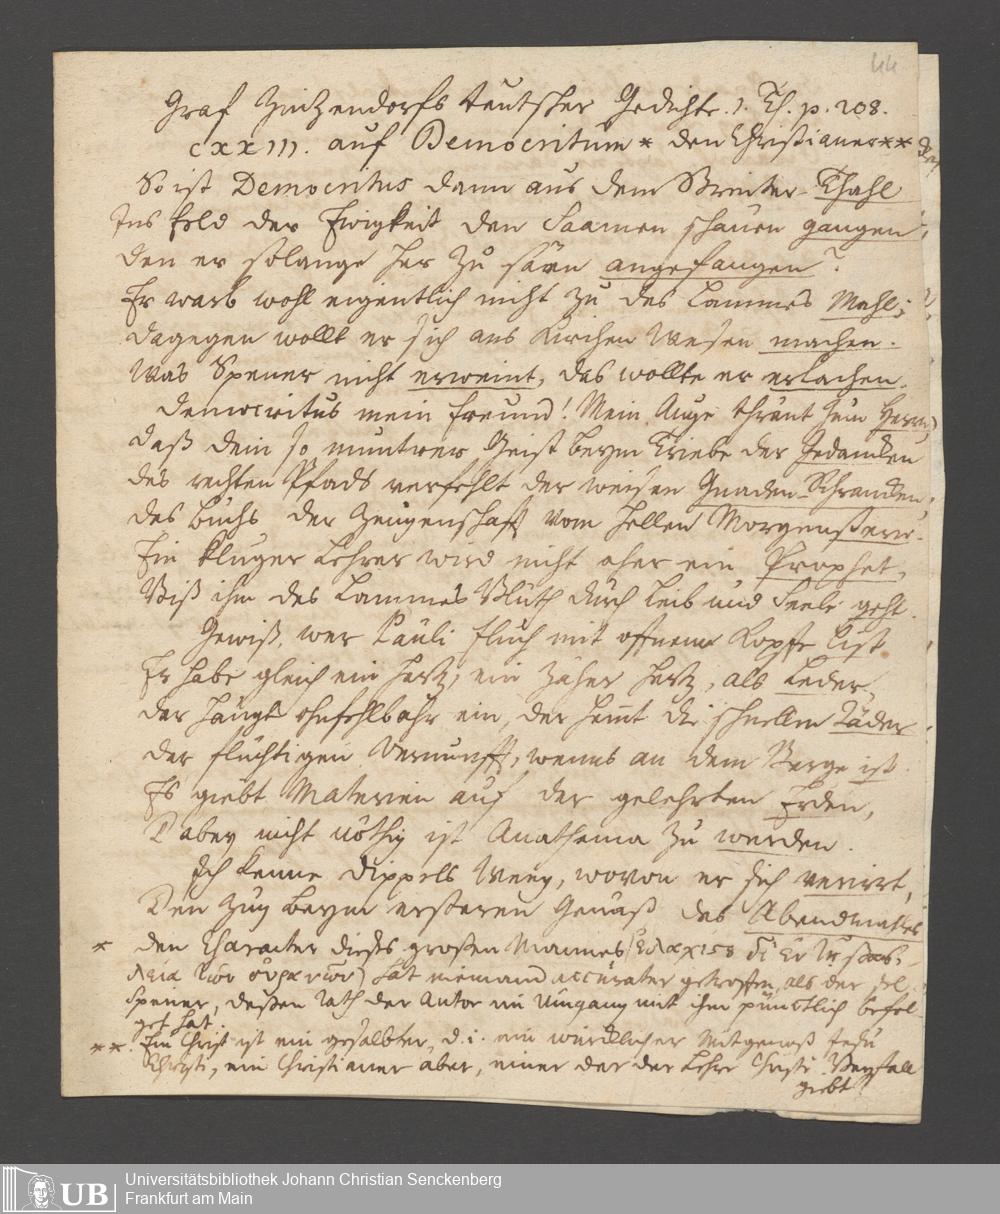 44
Graf Zinzendorfs teutscher Gedichte. 1. Th. p. 208.
CXXIII. auf Democritum * den Christianer **
So ist Democritus dann aus dem Winter-Thahl
Ins Feld der Ewigkeit den Saamen schauen gangen
den er solange hier zu säen angefangen?
Er warb wohl eigentlich nicht zu des Lammes Mahl;
dagegen wollt er sich ans Kirchen Wesen machen.
Was Spener nicht erweint, das wollte er erlachen.
Democritus mein Freund! Mein Auge thränt zum Herrn,
daß dein so muntrer Geist beym Triebe der Gedancken
des rechten Pfads verfehlt der weisen Gnaden-Schrancken,
des Buchs der Zeugenschafft vom hellen Morgenstern.
Ein kluger Lehrer wird nicht eher ein Prophet,
Biß ihm des Lammes Bluth durch Leib und Seele geht.
Gewiß, wer Pauli Fluch mit offnem Kopfe list
Er habe gleich ein Hertz, ein zäher Hertz, als Leder,
der hängt ohnfehlbahr ein, der hemt die schnellen Räder
der flüchtigen Vernunfft, wenns an dem Berge ist.
Es giebt Materien auf der gelehrten Erden,
Dabey nicht nöthig ist Anathema zu werden.
Ich kenne Dippels Weeg, wovon er sich verirrt,
Den Zug beym ersteren Genuß des Abendmahls
* den Character dieses großen Mannes
hat niemand accurater getroffen, als der sel.
Spener, deßen Rath der Autor im Umgang mit ihm pünctlich befol-
get hat.
** Ein Christ ist ein gesalbter, d. i. ein würcklicher Mitgenoß Jesu
Christi, ein Christianer aber, einer der der Lehre Christi Beyfall
giebt.
UB
Universitätsbibliothek Johann Christian Senckenberg
Frankfurt am Main